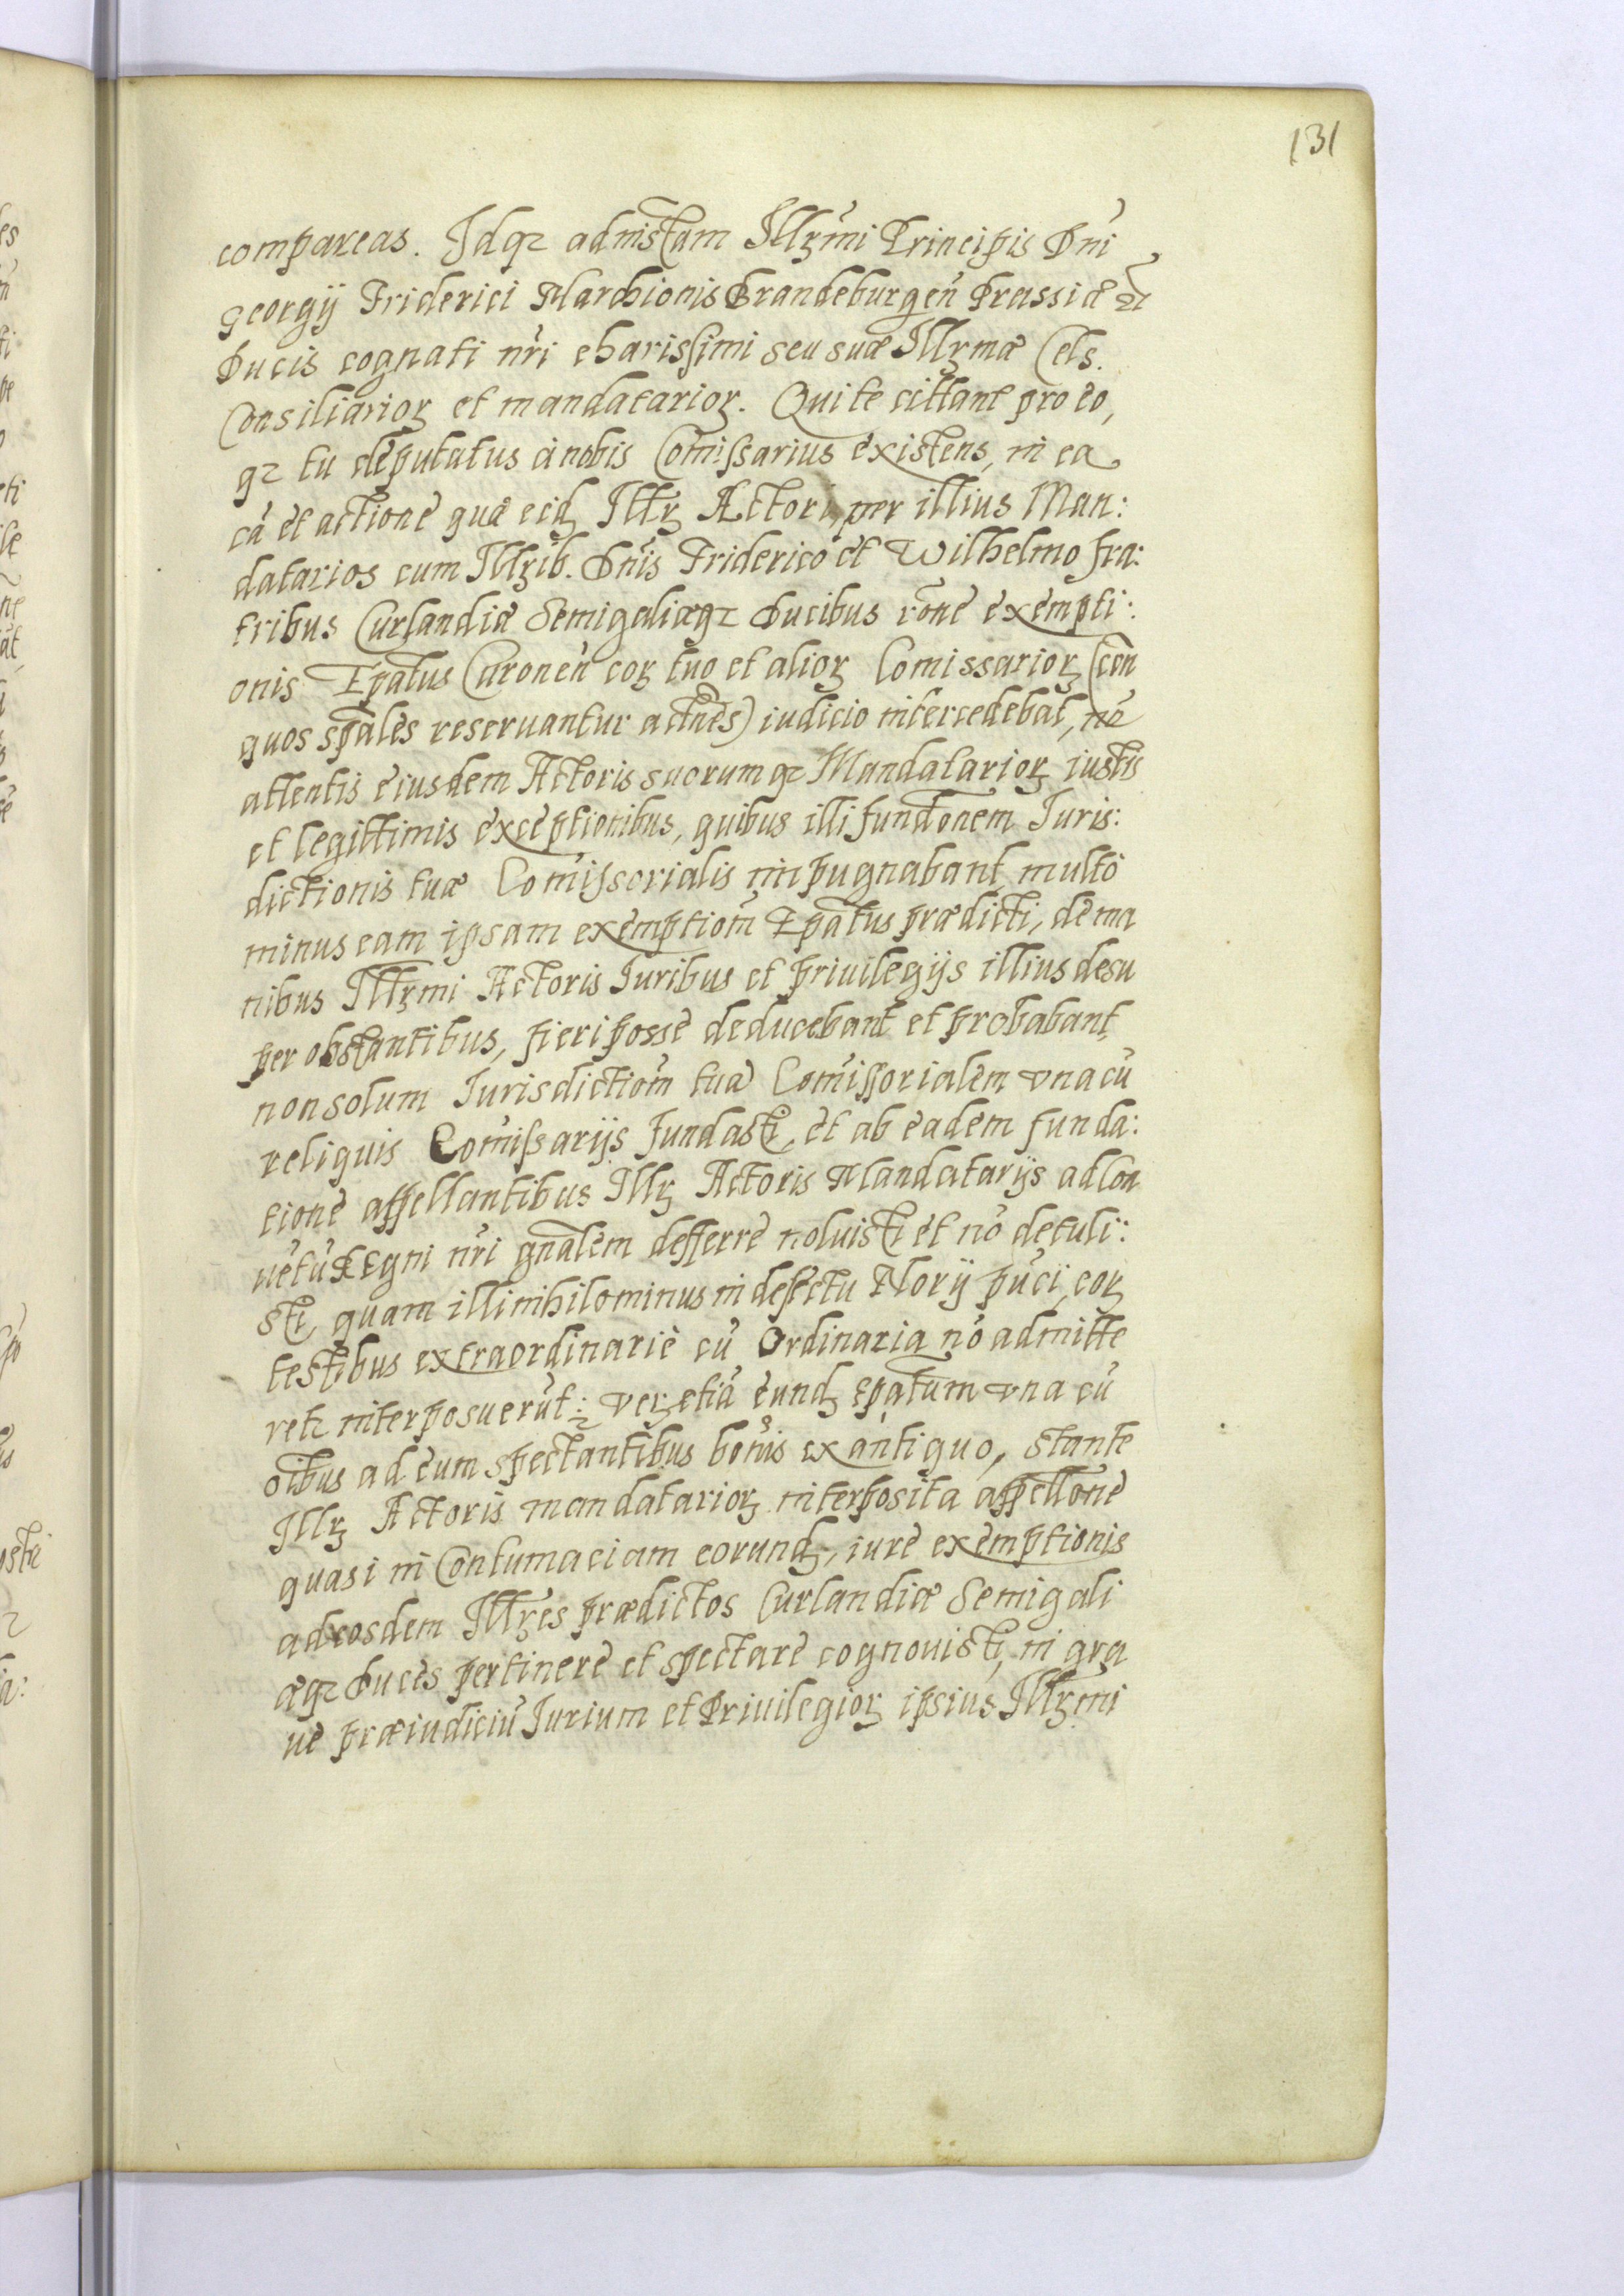 131
compareas. Idqꝫ ad instam Illꝛmi Principis Dni
georgij Friderici Marchionis Brandeburgen̄ Prussiæ ꝛc̄
Ducis cognati nr̄i charissimi seu suæ Illꝛmæ Cels.
Consiliarioꝝ et mandatarioꝝ. Qui te cittant pro eo,
qꝫ tu deputatus à nobis Comissarius existens, in ea
cā et actione quā eidꝫ Illꝛ Actori, per illius Man:
datarios cum Illꝛib. Dnis Friderico et Wilhelmo fra:
tribus Curlandiæ Semigaliæqꝫ Ducibus rōne exempti:
onis Epātus Curonen̄ coꝝ tuo et alioꝝ Comissarioꝝ (con
quos spāles reseruantur actnēs) iudicio intercedebat, nō
attentis eiusdem Actoris suorumqꝫ Mandatarioꝝ iustis
et legittimis exceptionibus, quibus illi fundōnem Juris:
dictionis tuæ Comissorialis impugnabant, multò
minus eam ipsam exemptiom̄ Epātus prædicti, de ma
nibus Illꝛmi Actoris Juribus et priuilegijs illius desu
per obstantibus, fieri posse deducebant et probabant,
non solum Jurisdictiom̄ tuā Comissorialem vna cū
reliquis Comissarijs fundasti, et ab eadem funda:
tione appellantibus Illꝛ Actoris Mandatarijs ad Con
uētū Regni nr̄i gnālem defferre noluisti et nō detuli:
sti, quam illi nihilominus in defectu Norij pūci, coꝝ
testibus extraordinariè cū Ordinaria nō admitte
retꝛ interposuerūt: veꝝ etiā eundꝫ epātum vna cū
oībus ad eum spectantibus bonis ex antiquo, stante
Illꝛ Actoris mandatarioꝝ interposita appellōne
quasi in Contumaciam eorundꝫ, iure exemptionis
ad eosdem Illꝛes prædictos Curlandiæ Semigali
æqꝫ Duces pertinere et spectare cognouisti, in gra
ue præiudiciū Jurium et Priuilegioꝝ ipsius Illꝛmi